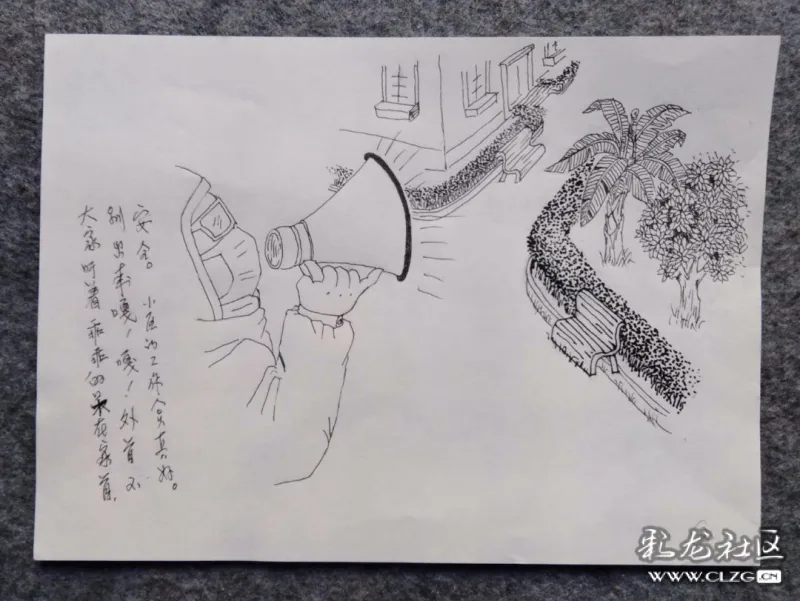 大家听着乖乖的呆在家首,
别出来嘎！嘎！外首不
安全。小区的工作人员真好。
彩龙社区
WWW.CLZG.CN